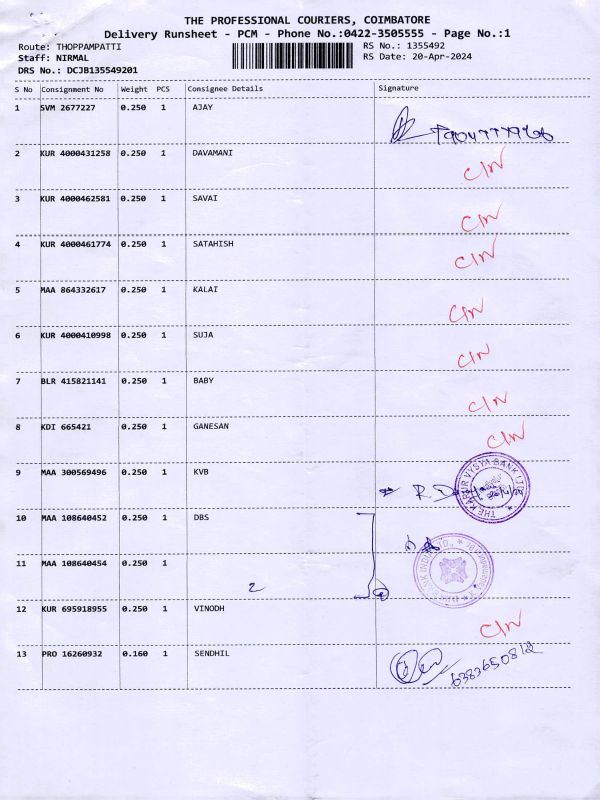 THE PROFESSIONAL COURIERS, COIMBATORE
Delivery Runsheet - PCM - Phone No.:0422-3505555 - Page No.:1
Route: THOPPAMPATTI RS No.: 1355492
Staff: NIRMAL RS Date: 20-Apr-2024
DRS No.: DCJB135549201
S No Consignment No Weight PCS Consignee Details Signature
1 SVM 2677227 0.250 1 AJAY
2 KUR 4000431258 0.250 1 DAVAMANI C/N
3 KUR 4000462581 0.250 1 SAVAI C/N
4 KUR 4000461774 0.250 1 SATAHISH C/N
5 MAA 864332617 0.250 1 KALAI C/N
6 KUR 4000410998 0.250 1 SUJA C/N
7 BLR 415821141 0.250 1 BABY C/N
8 KDI 665421 0.250 1 GANESAN C/N
9 MAA 300569496 0.250 1 KVB THE KARUR VYSYA BANK LTD
10 MAA 108640452 0.250 1 DBS
11 MAA 108640454 0.250 1
2
12 KUR 695918955 0.250 1 VINODH C/N
13 PRO 16260932 0.160 1 SENDHIL 6383650812